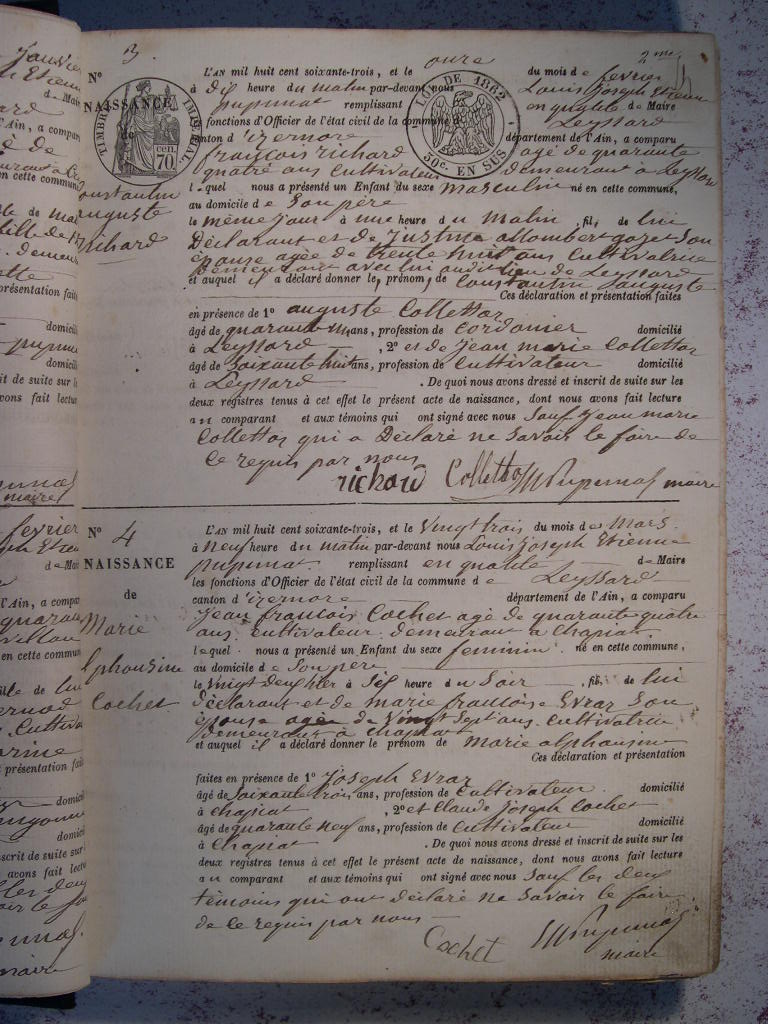 3
2me
N° NAISSANCE de
Constantin
auguste
richard
TIMBRE IMPÉRIAL
70 cen.
LOI DE 1862
50c. EN SUS
L'AN mil huit cent soixante-trois, et le onze du mois de fevrier
à dix heure du matin par-devant nous Louis Joseph Etienne
pupunat remplissant en qualité de Maire
les fonctions d'Officier de l'état civil de la commune de Leyssard
canton d'izernore département de l'Ain, a comparu
francois richard agé de quarante
quatre ans cultivateur demeurant à Leyssard
lequel nous a présenté un Enfant du sexe masculin né en cette commune,
au domicile de Son père
le même jour à une heure du matin, fils de lui
Déclarant et de Justine allombert gozet Son
épouse agée de trente huit ans Cultivatrice
demeurant avec lui audit lieu de Leyssard
et auquel il a déclaré donner les prénoms de Constantin auguste
Ces déclaration et présentation faites
en présence de 1° auguste Collettaz
âgé de quarante ans, profession de Cordonier domicilié
à Leyssard, 2° et de Jean marie Collettaz
âgé de Soixante huit ans, profession de Cultivateur domicilié
à Leyssard. De quoi nous avons dressé et inscrit de suite sur les
deux registres tenus à cet effet le présent acte de naissance, dont nous avons fait lecture
au comparant et aux témoins qui ont signé avec nous Sauf Jean marie
Collettaz qui a Déclaré ne Savoir le faire de
Ce requis par nous
richard Collettaz pupunat maire
N° 4
NAISSANCE
de
Marie
alphonsine
Cochet
L'AN mil huit cent soixante-trois, et le Vingt trois du mois de Mars
à neuf heure du matin par-devant nous Louis Joseph Etienne
pupunat remplissant en qualité de Maire
les fonctions d'Officier de l'état civil de la commune de Leyssard
canton d'izernore département de l'Ain, a comparu
Jean francois Cochet agé de quarante quatre
ans, cultivateur demeurant à Chapiat
lequel nous a présenté un Enfant du sexe feminin né en cette commune,
au domicile de Son père
le Vingt deux à Six heure du Soir, fille de lui
Déclarant et de marie francoise Evrar Son
épouse agée de Vingt Sept ans Cultivatrice
demeurant à Chapiat
et auquel il a déclaré donner le prénom de marie alphonsine
Ces déclaration et présentation
faites en présence de 1° Joseph Evrar
âgé de Soixante trois ans, profession de Cultivateur domicilié
à Chapiat, 2° et Claude Joseph Cochet
âgé de quarante neuf ans, profession de Cultivateur domicilié
à Chapiat. De quoi nous avons dressé et inscrit de suite sur les
deux registres tenus à cet effet le présent acte de naissance, dont nous avons fait lecture
au comparant et aux témoins qui ont signé avec nous Sauf les deux
témoins qui ont déclaré ne Savoir le faire
de ce requis par nous
Cochet pupunat
maire